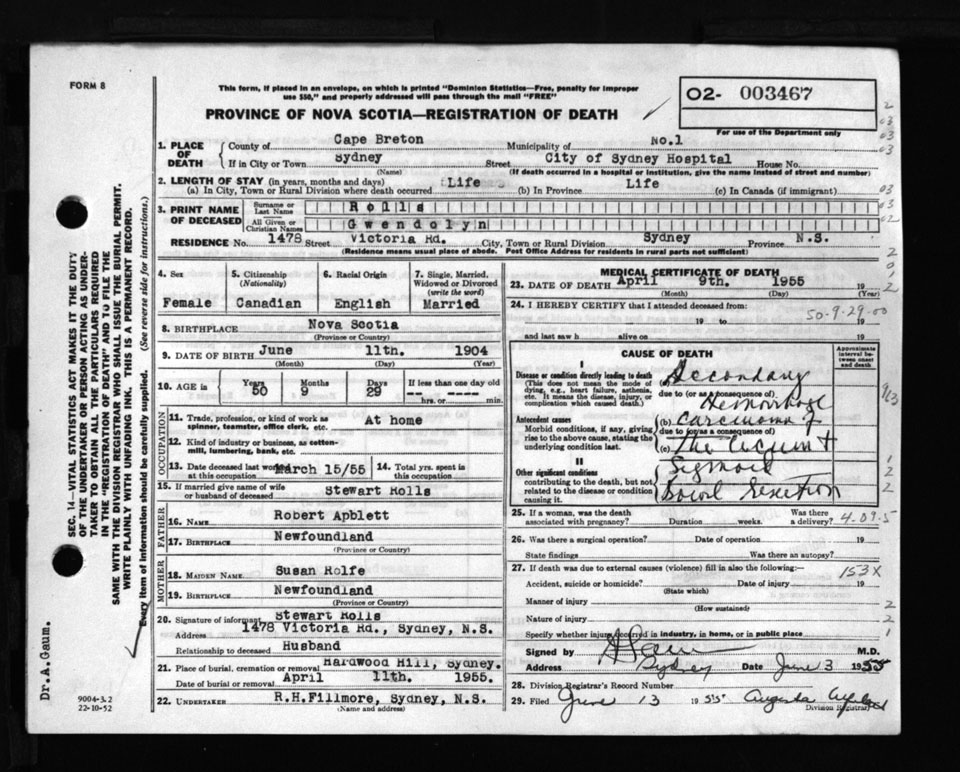 FORM 8
This form, if placed in an envelope, on which is printed "Dominion Statistics—Free, penalty for improper
use $50," and properly addressed will pass through the mail "FREE"
PROVINCE OF NOVA SCOTIA—REGISTRATION OF DEATH
02- 003467
For use of the Department only
1. PLACE OF DEATH
County of Cape Breton Municipality of No.1
If in City or Town Sydney Street City of Sydney Hospital House No.
(Name) (If death occurred in a hospital or institution, give the name instead of street and number)
2. LENGTH OF STAY (in years, months and days)
(a) In City, Town or Rural Division where death occurred Life (b) In Province Life (c) In Canada (if immigrant)
3. PRINT NAME OF DECEASED
Surname or Last Name Rolls
All Given or Christian Names Gwendolyn
RESIDENCE No. 1478 Street Victoria Rd. City, Town or Rural Division Sydney Province N.S.
(Residence means usual place of abode. Post Office Address for residents in rural parts not sufficient)
4. Sex 5. Citizenship 6. Racial Origin 7. Single, Married,
(Nationality) Widowed or Divorced
(write the word)
Female Canadian English Married
8. BIRTHPLACE Nova Scotia
(Province or Country)
9. DATE OF BIRTH June 11th. 1904
(Month) (Day) (Year)
10. AGE in Years Months Days If less than one day old
50 9 29 -- hrs. or ---- min.
OCCUPATION
11. Trade, profession, or kind of work as
spinner, teamster, office clerk, etc. At home
12. Kind of industry or business, as cotton-
mill, lumbering, bank, etc.
13. Date deceased last worked
at this occupation March 15/55 14. Total yrs. spent in
this occupation
15. If married give name of wife
or husband of deceased Stewart Rolls
FATHER
16. NAME Robert Apblett
17. BIRTHPLACE Newfoundland
(Province or Country)
MOTHER
18. MAIDEN NAME Susan Rolfe
19. BIRTHPLACE Newfoundland
(Province or Country)
20. Signature of informant Stewart Rolls
Address 1478 Victoria Rd., Sydney, N.S.
Relationship to deceased Husband
21. Place of burial, cremation or removal Hardwood Hill, Sydney.
Date of burial or removal April 11th. 1955.
22. UNDERTAKER R.H.Fillmore, Sydney, N.S.
(Name and address)
MEDICAL CERTIFICATE OF DEATH
23. DATE OF DEATH April 9th. 1955 19
(Month) (Day) (Year)
24. I HEREBY CERTIFY that I attended deceased from:
19 to 50-9-29-00 19
and last saw h alive on 19
CAUSE OF DEATH
Approximate interval between onset and death
I
Disease or condition directly leading to death
(This does not mean the mode of
dying, e.g., heart failure, asthenia,
etc. It means the disease, injury, or
complication which caused death.)
(a) Secondary
due to (or as a consequence of)
Hemorrhage
Antecedent causes
Morbid conditions, if any, giving
rise to the above cause, stating the
underlying condition last.
(b) Carcinoma of
due to (or as a consequence of)
(c) The Cecum +
Sigmoid
II
Other significant conditions
contributing to the death, but not
related to the disease or condition
causing it.
Bowel resection
25. If a woman, was the death
associated with pregnancy? Duration weeks. Was there
a delivery? 4-09-5
26. Was there a surgical operation? Date of operation 19
State findings Was there an autopsy?
27. If death was due to external causes (violence) fill in also the following:— 153X
Accident, suicide or homicide? Date of injury 19
(State which)
Manner of injury
(How sustained)
Nature of injury
Specify whether injury occurred in industry, in home, or in public place
Signed by M.D.
Address Sydney Date June 3 1955
28. Division Registrar's Record Number
29. Filed June 13 1955
Division Registrar
SEC. 14—VITAL STATISTICS ACT MAKES IT THE DUTY
OF THE UNDERTAKER OR PERSON ACTING AS UNDER-
TAKER TO OBTAIN ALL THE PARTICULARS REQUIRED
IN THE "REGISTRATION OF DEATH" AND TO FILE THE
SAME WITH THE DIVISION REGISTRAR WHO SHALL ISSUE THE BURIAL PERMIT.
WRITE PLAINLY WITH UNFADING INK. THIS IS A PERMANENT RECORD.
Every item of information should be carefully supplied. (See reverse side for instructions.)
Dr.A.Gaum.
9004-3.2
22-10-52